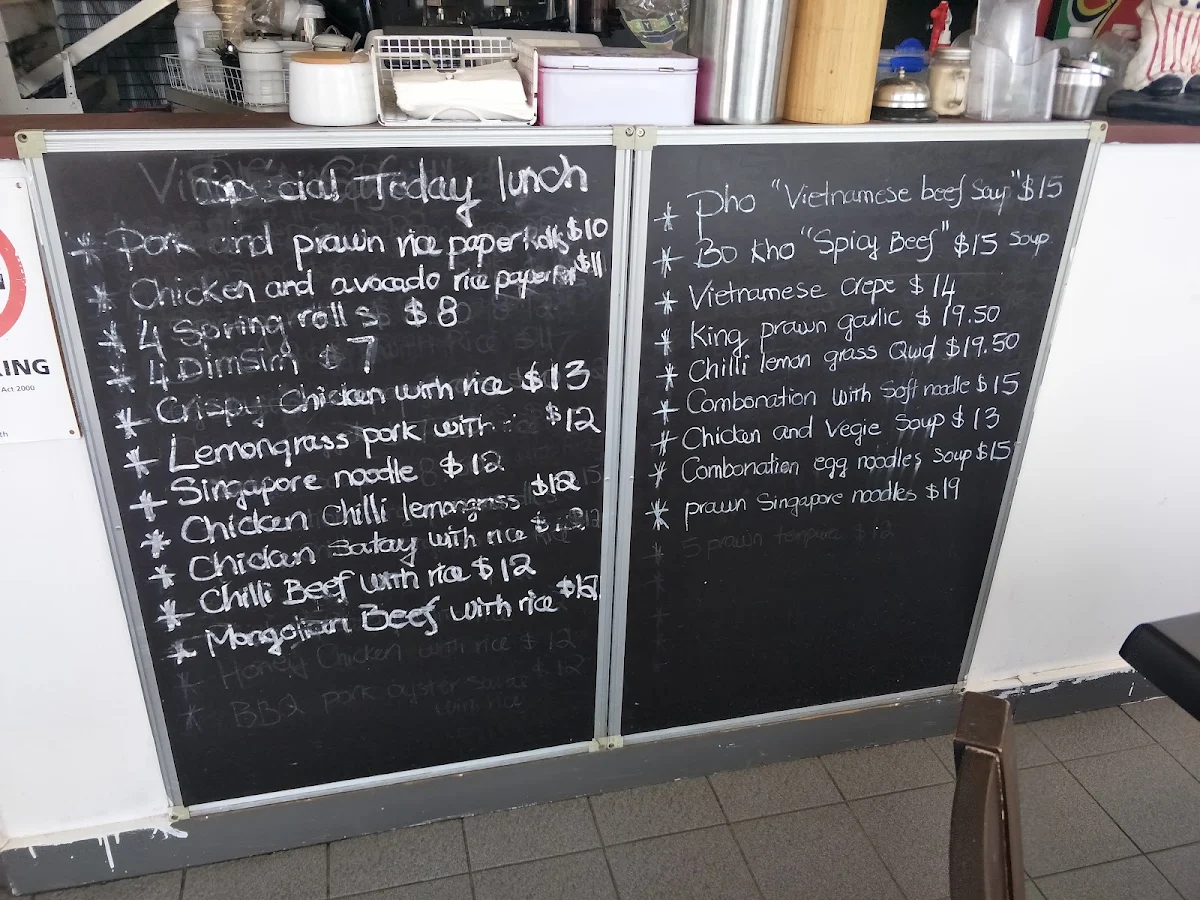 Special Today lunch
* Pork and prawn rice paper Rolls $10
* Chicken and avocado rice paper $11
* 4 Spring rolls $8
* 4 DimSim $7
* Crispy Chicken with rice $13
* Lemongrass pork with $12
* Singapore noodle $12
* Chicken Chilli lemongrass $12
* Chicken Satay with rice
* Chilli Beef with rice $12
* Mongolian Beef with rice
* Honey Chicken with rice $12
* BBQ pork oyster Sauce $12
with rice
* Pho "Vietnamese beef Soup" $15
* Bo kho "Spicy Beef" $15 Soup
* Vietnamese crepe $14
* King prawn garlic $19.50
* Chilli lemon grass Qwd $19.50
* Combonation with Soft noodle $15
* Chicken and Vegie Soup $13
* Combonation egg noodles Soup $15
* prawn Singapore noodles $19
* 5 prawn $12
KING
Act 2000